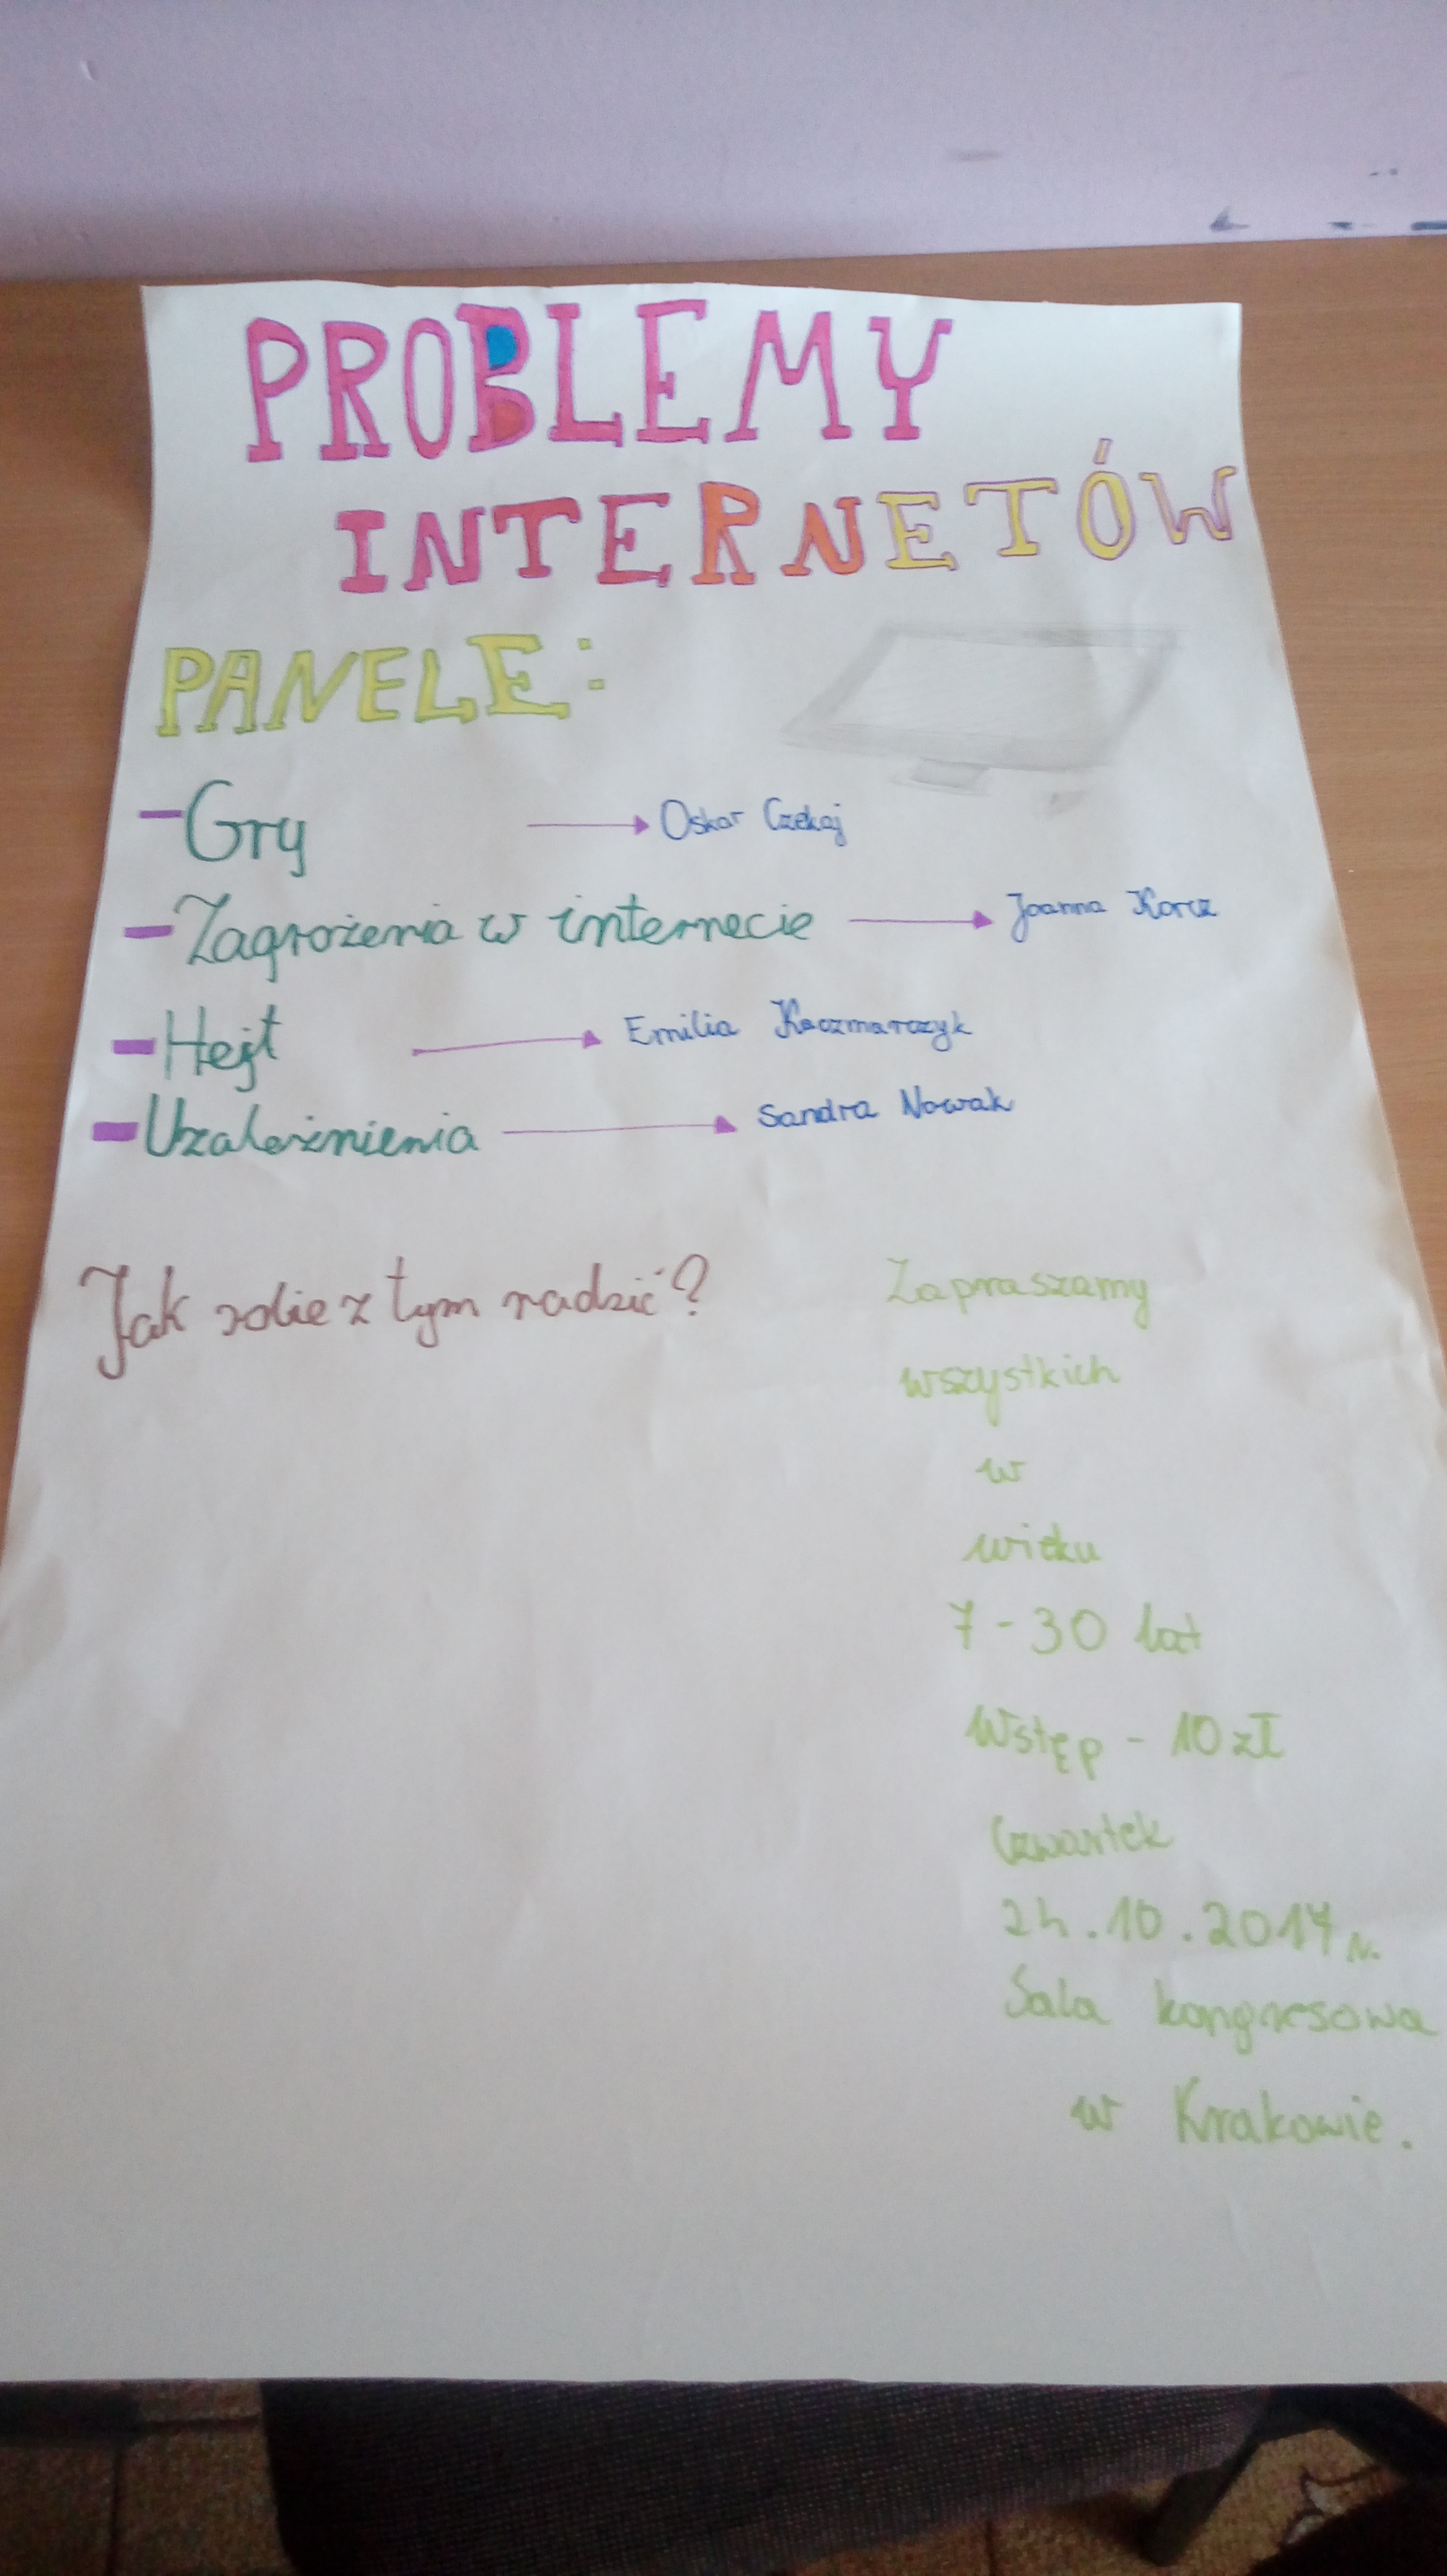 PROBLEMY
INTERNETÓW
PANELE:
- Gry → Oskar Czekaj
- Zagrożenia w internecie → Joanna Korcz
- Hejt → Emilia Kaczmarczyk
- Uzależnienia → Sandra Nowak
Jak sobie z tym radzić?
Zapraszamy
wszystkich
w
wieku
7-30 lat
Wstęp - 10 zł
Czwartek
24.10.2017 r.
Sala kongresowa
w Krakowie.